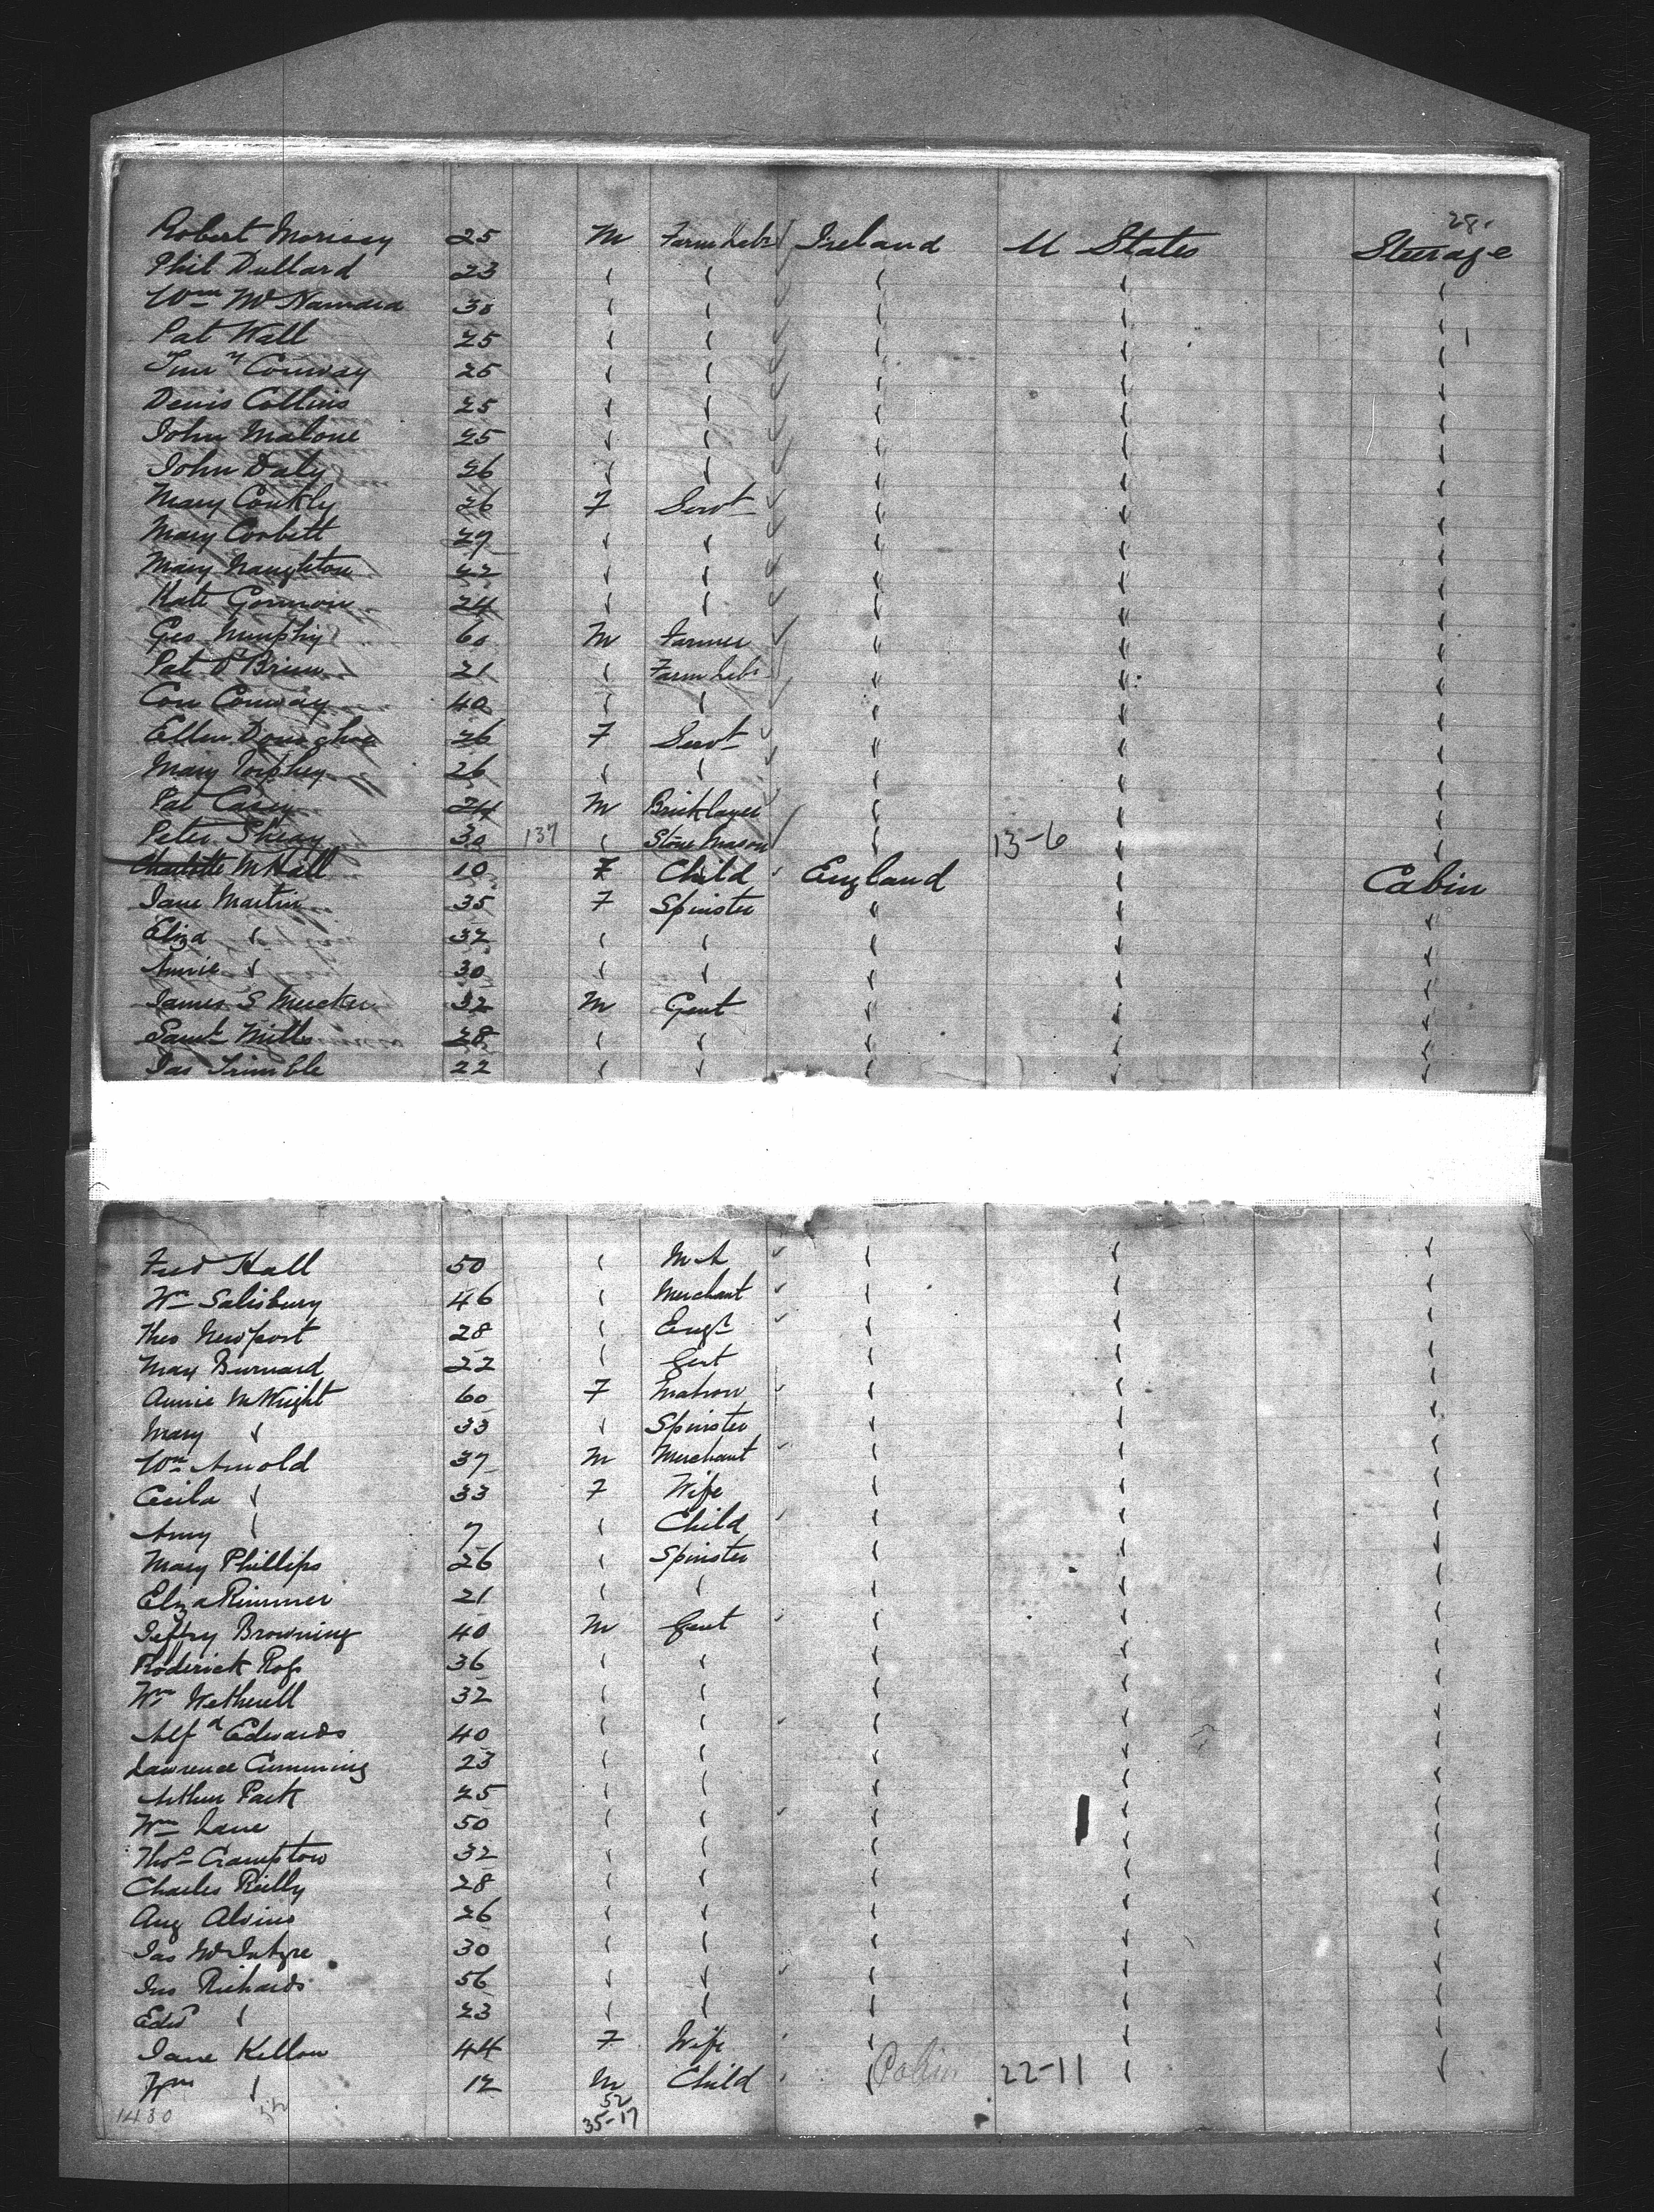 28.
Robert Morisey 25 M Farm Labr Ireland U States Steerage
Phil Dullard 23 " " " " "
Wm McNamara 30 " " " " "
Pat Wall 25 " " " " "
Timy Conway 25 " " " " "
Denis Collins 25 " " " " "
John Malone 25 " " " " "
John Daly 26 " " " " "
Mary Conkly 26 F Servt " " "
Mary Corbett 27 " " " " "
Mary Naughton 22 " " " " "
Kate 24 " " " " "
Geo Murphy 60 M Farmer " " "
Pat O'Brien 21 " Farm Labr " " "
Con Conway 40 " " " " "
Ellen Donoghue 26 F Servt " " "
Mary Torphey 26 " " " " "
Pat Casey 24 M Bricklayer " " "
Peter 30 137 " Stone Mason " 13-6 " "
Charlotte M Hall 10 F Child England " Cabin
Jane Martin 35 F Spinster " " "
Eliza " 32 " " " " "
Annie " 30 " " " " "
James S 32 M Gent " " "
Saml Mills 28 " " " " "
Jas Trimble 22 " " " " "
Fred Hall 50 " M A " " "
Wm Salisbury 46 " Merchant " " "
Theo Newport 28 " Engr " " "
Max Burnard 22 " Gent " " "
Annie M Wright 60 F Matron " " "
Mary " 33 " Spinster " " "
Wm Arnold 37 M Merchant " " "
Cecila " 33 F Wife " " "
Amy " 7 " Child " " "
Mary Phillips 26 " Spinster " " "
Eliza Rimmer 21 " " " " "
Jeffry Browning 40 M Gent " " "
Roderick Ross 36 " " " " "
Wm Wetherell 32 " " " " "
Alfd Edwards 40 " " " " "
Lawrence Cumming 23 " " " " "
Arthur Park 25 " " " " "
Wm Lane 50 " " " " "
Thos Crampton 32 " " " " "
Charles Reilly 28 " " " " "
Aug Alvins 26 " " " " "
Jas McIntyre 30 " " " " "
Jno Richards 56 " " " " "
Edwd " 23 " " " " "
Jane Kellow 44 F Wife " " "
Wm " 12 M Child " Cabin 22-11 " "
52
1430 35-17